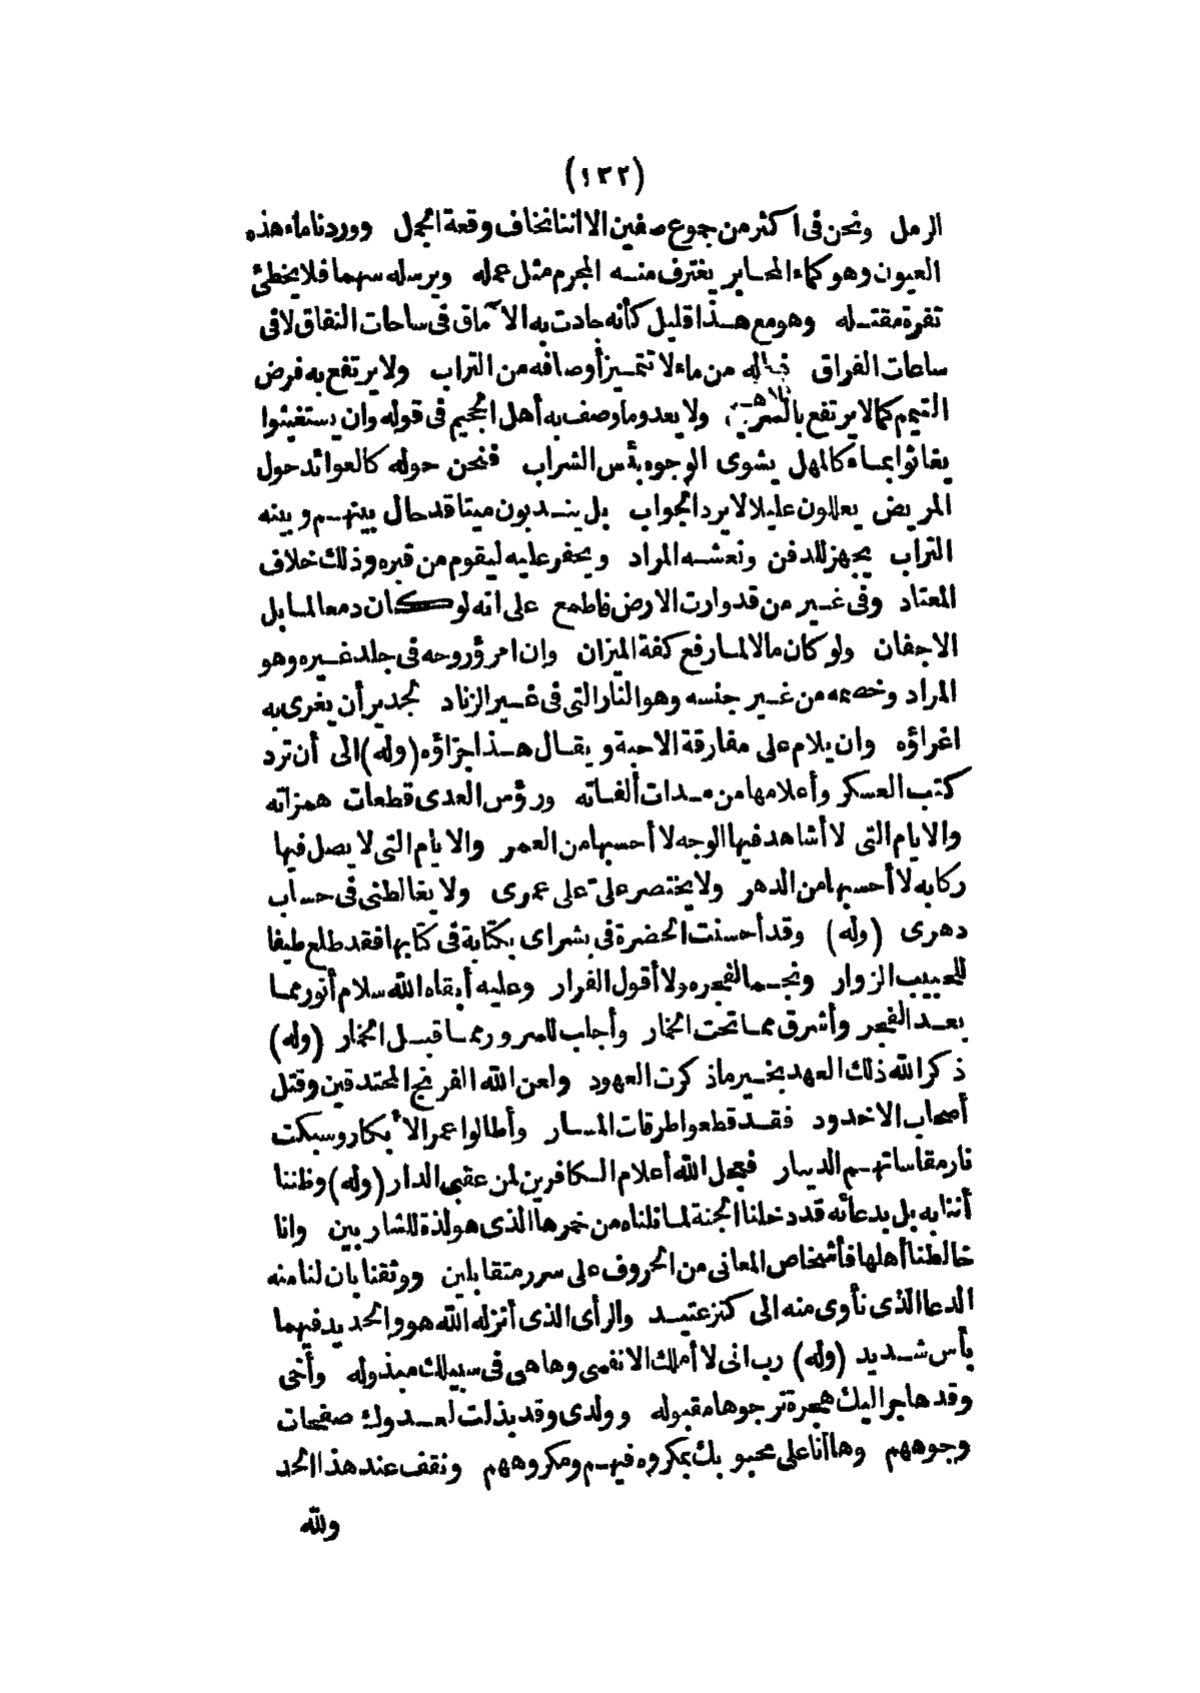 (١٢٢)
الرمل ونحن فى اكثر من جوع صفين الا اننا نخاف وقعة الجمل ووردنا ماء هذه
العيون وهو كماء المحابر يغترف منه المجرم مثل عمله ويرسله سهما فلا يخطئ
ثغرة مقتله وهو مع هذا قليل كأنه جادت به الآماق فى ساحات النفاق لا فى
ساعات الفراق فياله من ماء لا تتميز أوصافه من التراب ولا يرتفع به فرض
التيمم كما لا يرتفع بالسراب ولا يعدو ما وصف به أهل الجحيم فى قوله وان يستغيثوا
يغاثوا بماء كالمهل يشوى الوجوه بئس الشراب فنحن حوله كالعوائد حول
المريض يعللون عليلا لا يرد الجواب بل يندبون ميتا قد حال بينهم وبينه
التراب يجهز للدفن ونعشه المراد ويحفر عليه ليقوم من قبره وذلك خلاف
المعتاد وفى غير من قد وارت الارض فاطمع على انه لو كان دمعا لما بل
الاجفان ولو كان مالا لما رفع كفة الميزان وان امرؤ روحه فى جلد غيره وهو
المراد وخصمه من غير جنسه وهو النار التى فى غير الزناد لجدير أن يغرى به
اغراؤه وان يلام على مفارقة الاحبة ويقال هذا جزاؤه (وله) الى أن ترد
كتب العسكر وأعلامها من مدات ألفاته ورؤس العدى قطعات همزاته
والايام التى لا أشاهد فيها الوجه لا أحسبها من العمر والايام التى لا يصل فيها
ركابه لا أحسبها من الدهر ولا يختصر علىّ على عمرى ولا يغالطنى فى حساب
دهرى (وله) وقد أحسنت الحضرة فى بشراى بكتابة فى كتابها فقد طلع طيفا
للحبيب الزوار ونجما لفجره ولا أقول الفرار وعليه أبقاه الله سلام أنور مما
بعد الفجر وأشرق مما تحت الخمار وأجلب للسرور مما قبل الخمار (وله)
ذكر الله ذلك العهد بخير ما ذكرت العهود ولعن الله الفرنج المحتدقين وقتل
أصحاب الاخدود فقد قطعوا طرقات المسار وأطالوا عمر الأبكار وسبكت
نار مقاساتهم الدينار فجعل الله أعلام الكافرين لمن عقبى الدار (وله) وظننا
أننا به بل بدعائه قد دخلنا الجنة لما نلناه من خمرها الذى هو لذة للشاربين وانا
خالطنا أهلها فأشخاص المعانى من الحروف على سرر متقابلين ووثقنا بان لنا منه
الدعا الذى نأوى منه الى كنز عتيد والرأى الذى أنزله الله هو والحديد فيهما
بأس شديد (وله) رب انى لا أملك الا نفسى وها هى فى سبيلك مبذوله وأخى
وقد هاجر اليك هجرة ترجوها مقبوله وولدى وقد بذلت لعدوك صفحات
وجوههم وها أنا على محبوبك بمكروه فيهم ومكروههم ونقف عند هذا الحد
ولله